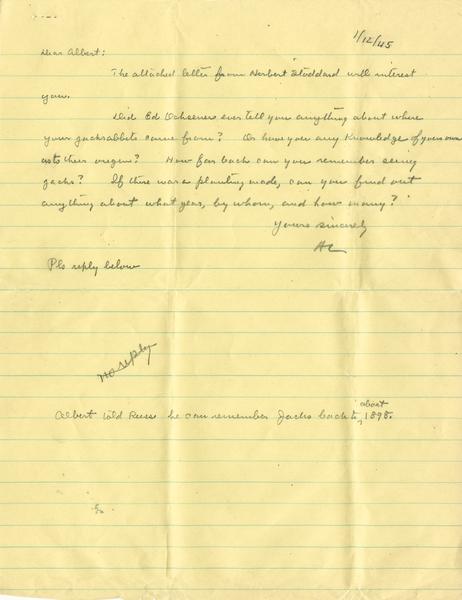 1/12/45
Dear Albert:
The attached letter from Herbert Stoddard will interest
you.
Did Ed Ochsener ever tell you anything about where
your jackrabbits came from? Or have you any knowledge of your own
as to their origin? How far back can you remember seeing
jacks? If there was a planting made, can you find out
anything about what year, by whom, and how many?
Yours sincerely
AL
Pls reply below
no reply
about
Albert told Reese he can remember Jacks back to 1898.